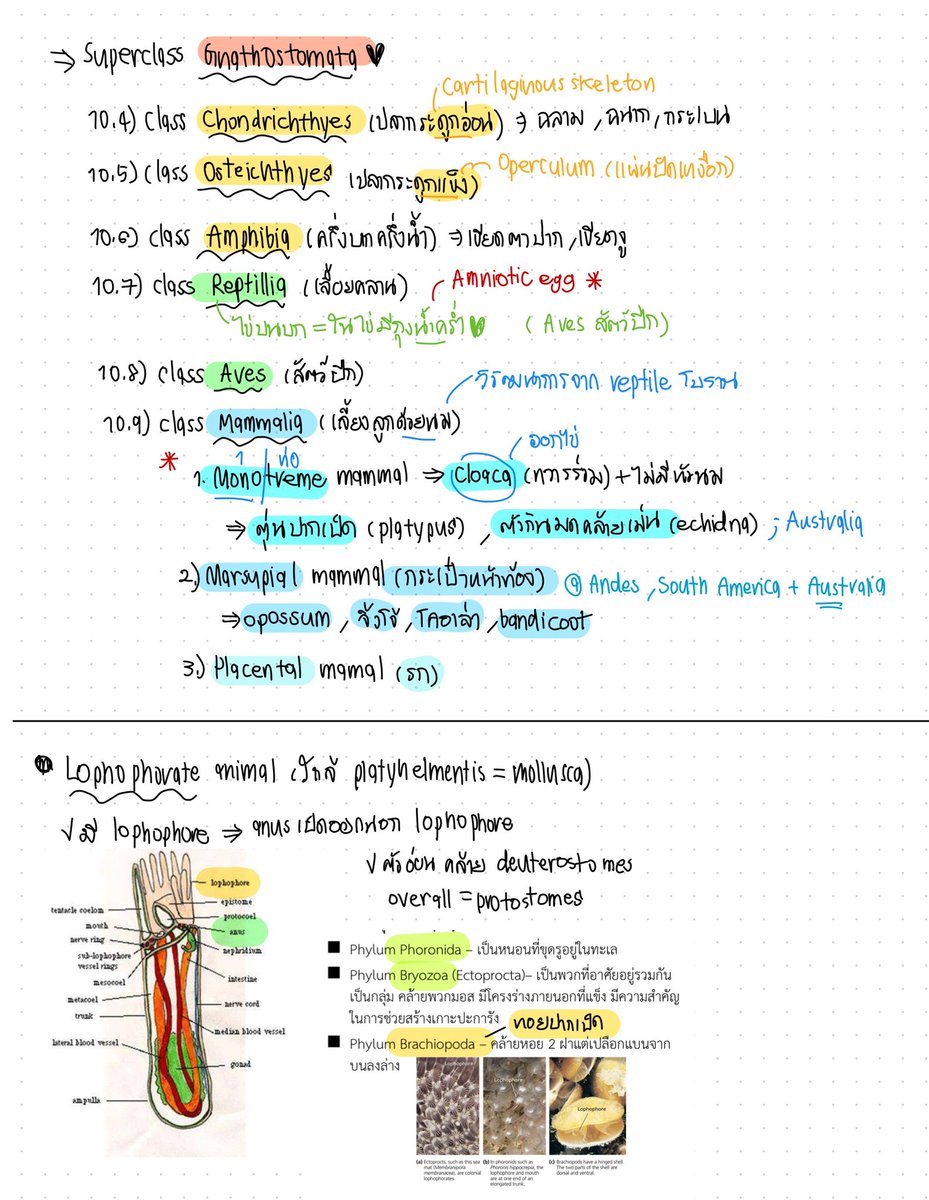 ⇒ Superclass Gnathostomata ♥
Cartilaginous skeleton
10.4) Class Chondrichthyes (ปลากระดูกอ่อน) ⇒ ฉลาม , ฉนาก , กระเบน
10.5) Class Osteichthyes (ปลากระดูกแข็ง) Operculum (แผ่นปิดเหงือก)
10.6) Class Amphibia (ครึ่งบกครึ่งน้ำ) ⇒ เขียดตาปาก , เขียดงู
10.7) Class Reptillia (เลื้อยคลาน) Amniotic egg *
ไข่บนบก = ในไข่มีถุงน้ำคร่ำ ♥ (Aves สัตว์ปีก)
10.8) Class Aves (สัตว์ปีก)
วิวัฒนาการจาก reptile โบราณ
10.9) Class Mammalia (เลี้ยงลูกด้วยนม)
* 1 ท่อ ออกไข่
1. Monotreme mammal ⇒ Cloaca (ทวารร่วม) + ไม่มีหัวนม
⇒ ตุ่นปากเป็ด (platypus) , ตัวกินมดคล้ายเม่น (echidna) ; Australia
2) Marsupial mammal (กระเป๋าหน้าท้อง) Andes , South America + Australia
⇒ opossum , จิงโจ้ , โคอาล่า , bandicoot
3.) Placental mamal (รก)
Lophophorate animal (ใกล้ platyhelmentis = mollusca)
✓ มี lophophore ⇒ anus เปิดออกนอก lophophore
✓ ตัวอ่อน คล้าย deuterostomes
overall = protostomes
lophophore
epistome
tentacle coelom
protocoel
mouth
anus
nerve ring
nephridium
sub-lophophore
vessel rings
mesocoel
intestine
metacoel
nerve cord
trunk
median blood vessel
lateral blood vessel
gonad
ampulla
■ Phylum Phoronida – เป็นหนอนที่ขุดรูอยู่ในทะเล
■ Phylum Bryozoa (Ectoprocta)– เป็นพวกที่อาศัยอยู่รวมกัน
เป็นกลุ่ม คล้ายพวกมอส มีโครงร่างภายนอกที่แข็ง มีความสำคัญ
ในการช่วยสร้างเกาะปะการัง
หอยปากเป็ด
■ Phylum Brachiopoda – คล้ายหอย 2 ฝาแต่เปลือกแบนจาก
บนลงล่าง
Lophophore
Lophophore
(a) Ectoprocts, such as this sea
mat (Membranipora
membranacea), are colonial
lophophorates.
(b) In phoronids such as
Phoronis hippocrepia, the
lophophore and mouth
are at one end of an
elongated trunk.
(c) Brachiopods have a hinged shell.
The two parts of the shell are
dorsal and ventral.